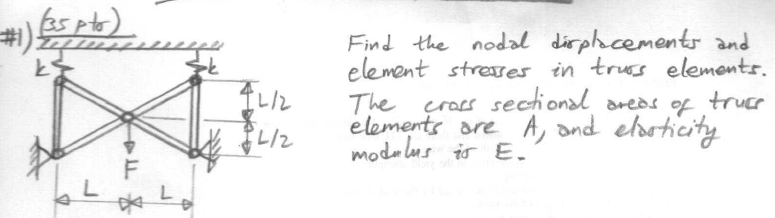 #1) (35 pts)
k
k
L/2
L/2
F
L
L
Find the nodal displacements and
element stresses in truss elements.
The cross sectional areas of truss
elements are A, and elasticity
modulus is E.